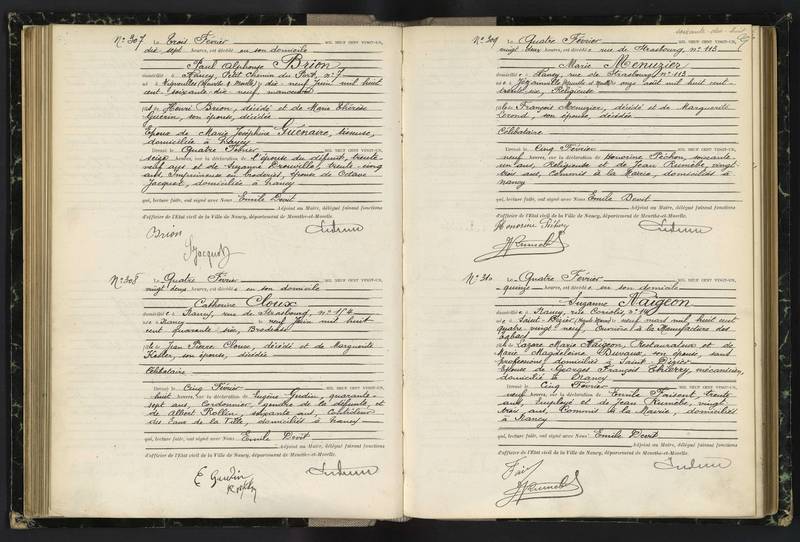 N° 307 Le Trois Février MIL NEUF CENT VINGT-UN,
dix-sept heures, est décédé en son domicile
Paul Alphonse Brion
domicilié à Nancy, Petit Chemin du Port, n° 7
né à Vignoulles (Meurthe & Moselle) dix-neuf Juin mil huit
cent soixante-dix-neuf, manœuvre
fils de Henri Brion, décédé et de Marie Thérèse
Guérin, son épouse, décédée
Epoux de Marie Joséphine Guénaire,
domiciliée à Nancy
Devant le Quatre Février
seize heures, sur la déclaration de l'épouse du défunt, trente-
ans et de Suzanne Drouvillot, trente-cinq
ans, Imprimeuse en broderies, épouse de Octave
Jacquot, domiciliés à Nancy
qui, lecture faite, ont signé avec Nous Emile Devit
Adjoint au Maire, délégué faisant fonctions
d'officier de l'État civil de la Ville de Nancy, département de Meurthe-et-Moselle.
Brion
Jacquot
N° 308 Le Quatre Février MIL NEUF CENT VINGT-UN,
vingt-deux heures, est décédée en son domicile
Catherine Cloux
domiciliée à Nancy, rue de Strasbourg, n° 173
née à Nancy le neuf Juin mil huit
cent quarante-six, Brodeuse
fille de Jean Pierre Cloux, décédé et de Marguerite
Kesler, son épouse, décédée
Célibataire
Devant le Cinq Février
huit heures, sur la déclaration de Eugène Gudin, quarante-
sept ans, Cordonnier, gendre de la défunte, et
de Albert Rollin, soixante ans, Contrôleur
des Eaux de la Ville, domiciliés à Nancy
qui, lecture faite, ont signé avec Nous Emile Devit
Adjoint au Maire, délégué faisant fonctions
d'officier de l'État civil de la Ville de Nancy, département de Meurthe-et-Moselle.
E Gudin
soixante-dix-huit
N° 309 Le Quatre Février MIL NEUF CENT VINGT-UN,
vingt-deux heures, est décédée rue de Strasbourg, n° 113
Marie Menuzier
domiciliée à Nancy, rue de Strasbourg n° 113
née à Jezainville (Meurthe & Moselle) onze août mil huit cent-
trente-six, Religieuse
fille de François Menuzier, décédé et de Marguerite
Lerond, son épouse, décédée
Célibataire
Devant le Cinq Février
neuf heures, sur la déclaration de Honorine Péchon, soixante-
ans, Religieuse et de Jean Rumeble, vingt-
trois ans, Commis à la Mairie, domiciliés à
Nancy
qui, lecture faite, ont signé avec Nous Emile Devit
Adjoint au Maire, délégué faisant fonctions
d'officier de l'État civil de la Ville de Nancy, département de Meurthe-et-Moselle.
Honorine Péchon
JRumeble
N° 310 Le Quatre Février MIL NEUF CENT VINGT-UN,
quinze heures, est décédée en son domicile
Suzanne Naigeon
domiciliée à Nancy, rue Coriolis, n° 14
née à Saint-Dizier (Haute Marne) neuf mars mil huit cent
quatre vingt neuf, Ouvrière à la Manufacture des
tabacs
fille de Lazare Marie Naigeon, Restaurateur et de
Marie Magdeleine Duvaux, son épouse, sans
profession, domiciliés à Saint-Dizier
Epouse de Georges François Thierry, mécanicien,
domicilié à Nancy
Devant le Cinq Février
neuf heures, sur la déclaration de Emile Faisent, trente
ans, Employé et de Jean Rumeble, vingt-
trois ans, Commis à la Mairie, domiciliés
à Nancy
qui, lecture faite, ont signé avec Nous Emile Devit
Adjoint au Maire, délégué faisant fonctions
d'officier de l'État civil de la Ville de Nancy, département de Meurthe-et-Moselle.
JRumeble